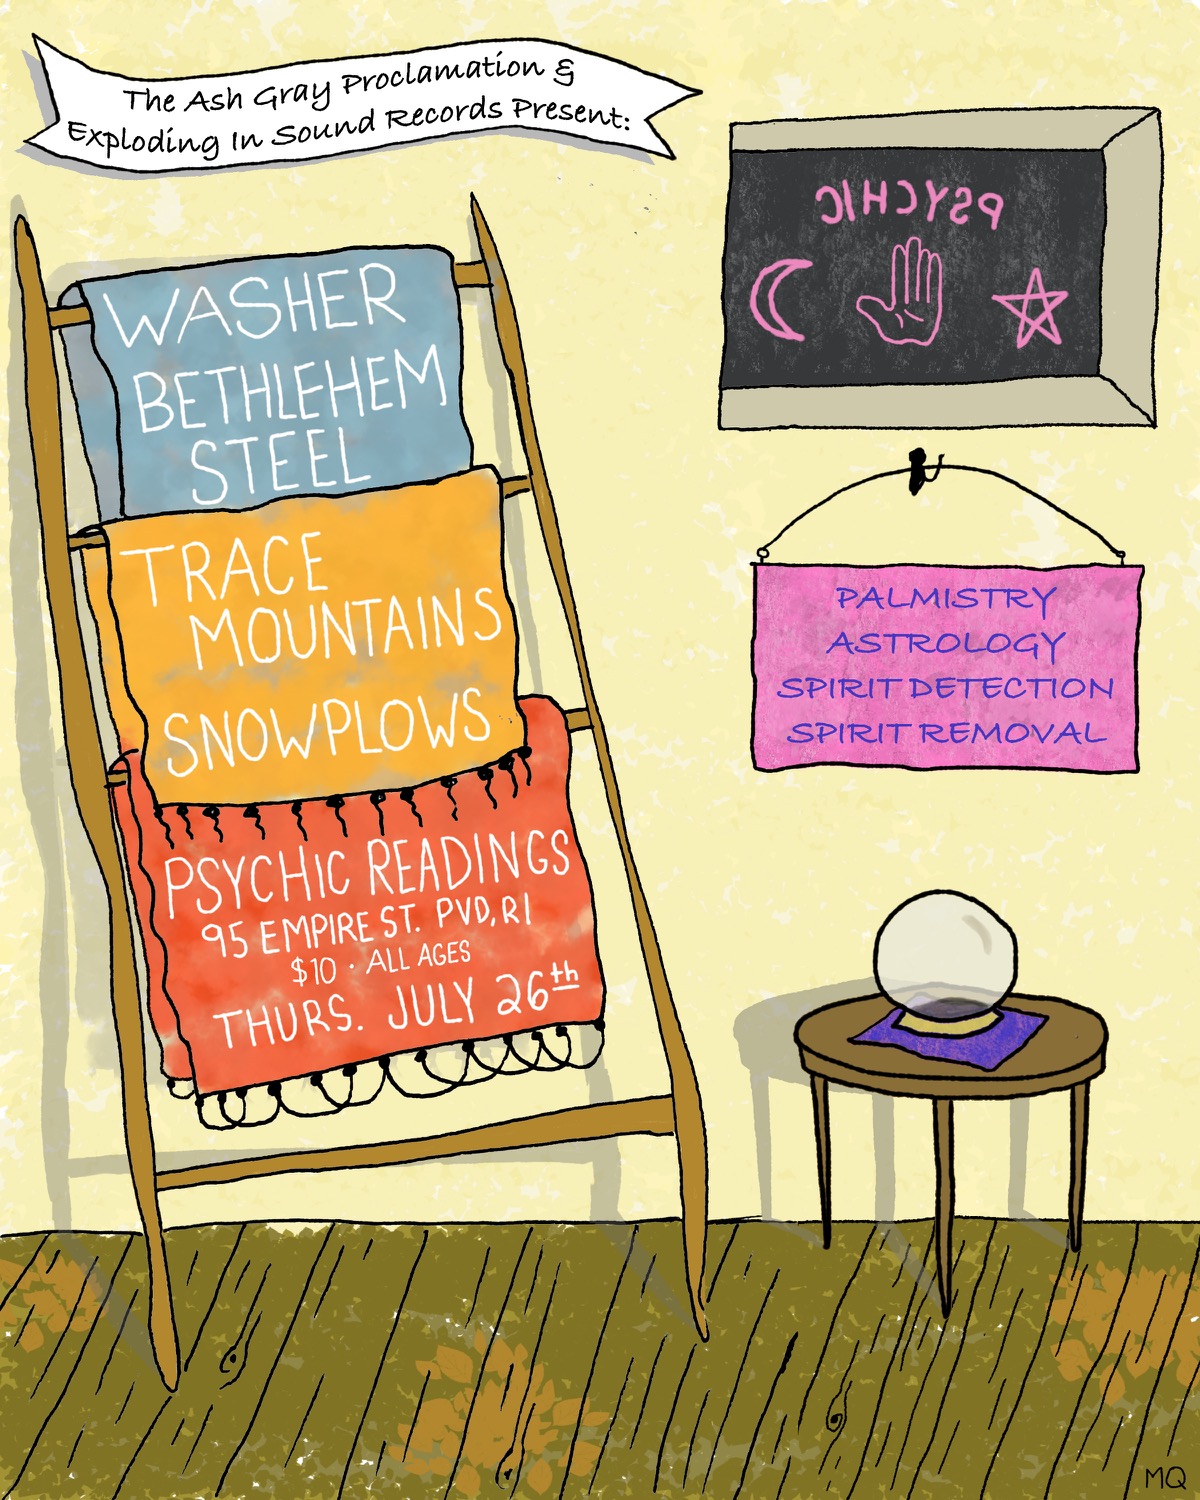 The Ash Gray Proclamation &
Exploding In Sound Records Present:
WASHER
BETHLEHEM
STEEL
TRACE
MOUNTAINS
SNOWPLOWS
PSYCHIC READINGS
95 EMPIRE ST. PVD, RI
$10 · ALL AGES
THURS. JULY 26th
PSYCHIC
PALMISTRY
ASTROLOGY
SPIRIT DETECTION
SPIRIT REMOVAL
MQ